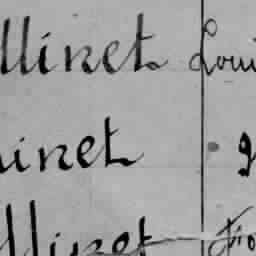 llinet Loui
inet
llinet